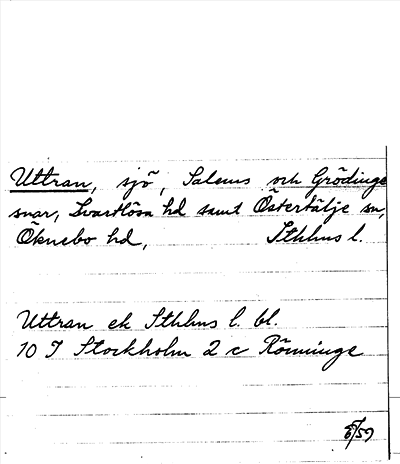 Uttran, sjö, Salems och Grödinge
snar, Svartlösa hd samt Östertälje sn,
Öknebo hd, Sthlms l.
Uttran ek Sthlms l. bl.
10 I Stockholm 2 c Rönninge
8/59